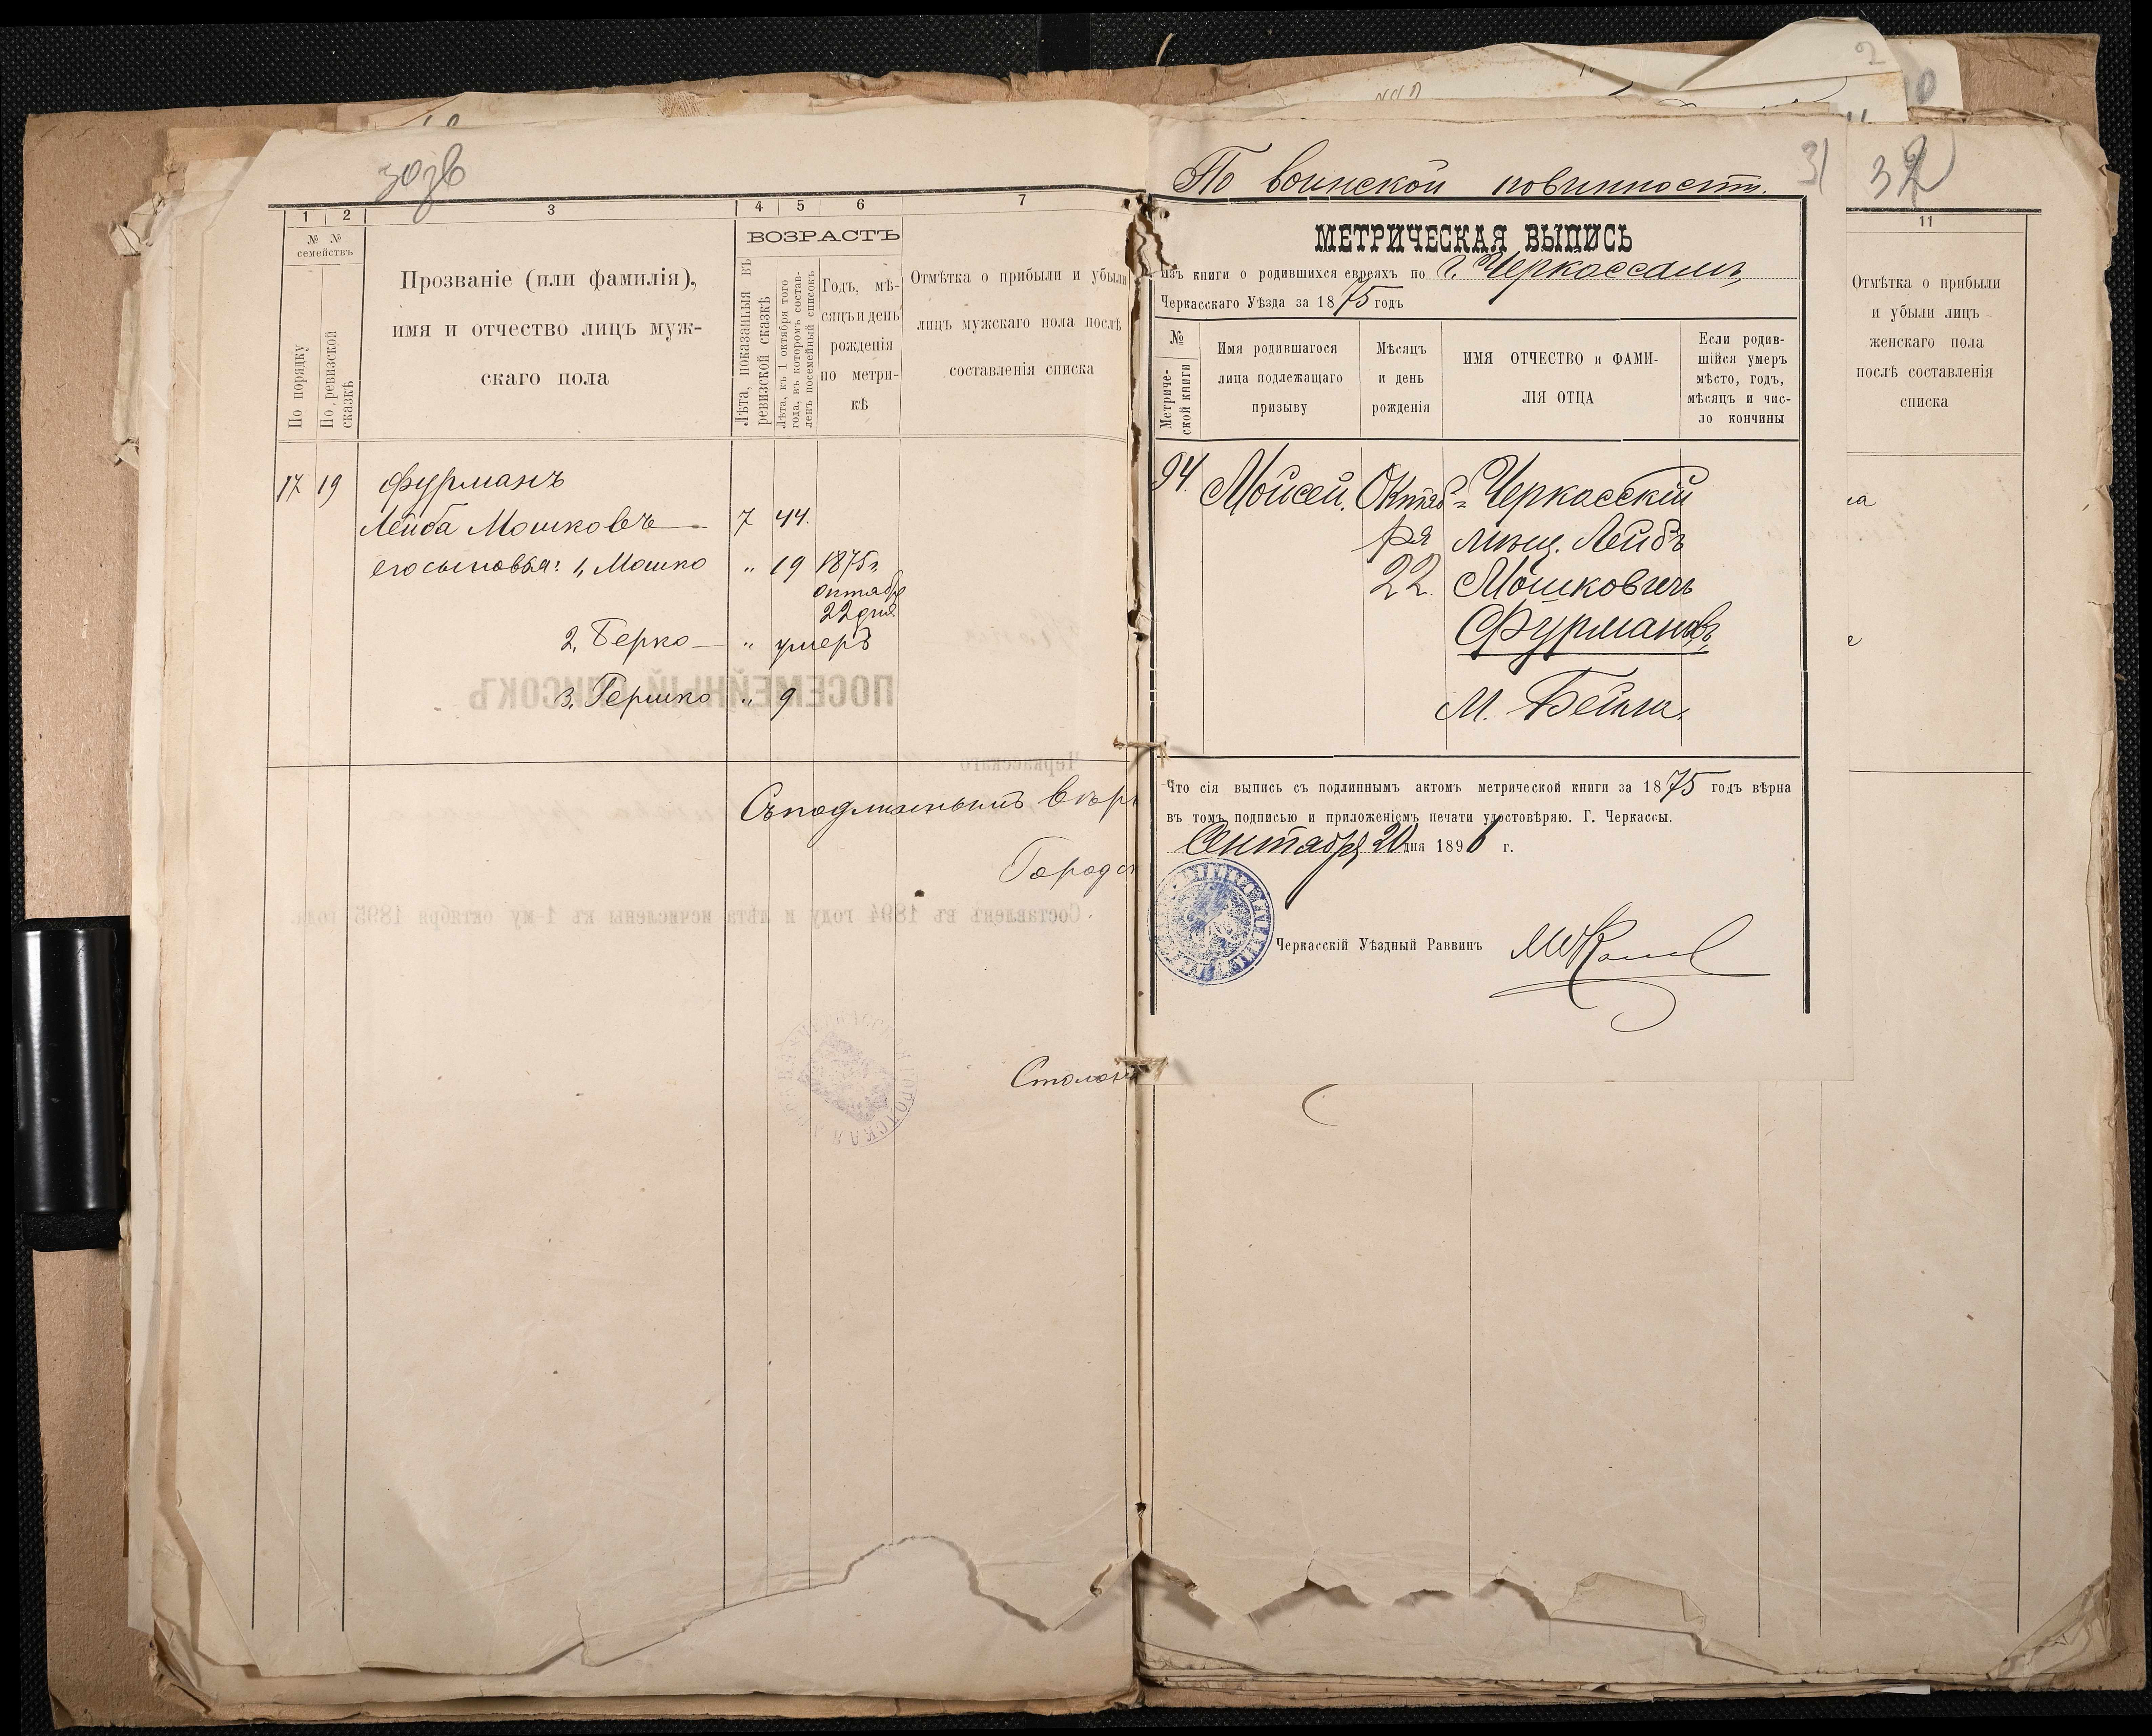 1
2
3
4
5
6
7
№ №
семействъ
По порядку
По ревизской
сказкѣ
Прозваніе (или фамилія),
имя и отчество лицъ муж-
скаго пола
ВОЗРАСТЪ
Лѣта, показанныя въ
ревизской сказкѣ
Лѣта, къ 1 октября того
года, въ которомъ состав-
ленъ посемейный списокъ
Годъ, мѣ-
сяцъ и день
рожденія
по метри-
кѣ
Отмѣтка о прибыли и убыли
лицъ мужскаго пола послѣ
составленія списка
17 19 Фурманъ
Лейба Мошковъ 7 44.
его сыновья: 1, Мошко " 19 1875 г.
октября
22 дня
2, Берко " умеръ
3, Гершко " 9
ПОСЕМЕЙНЫЙ СПИСОКЪ
Черкасскаго
Съ подлиннымъ вѣр
Городск
Составленъ въ 1894 году и лѣта исчислены къ 1-му октября 1895 года.
Столон
По воинской повинности.
31
32
МЕТРИЧЕСКАЯ ВЫПИСЬ
Изъ книги о родившихся евреяхъ по г. Черкассамъ
Черкасскаго Уѣзда за 1875 годъ
№
Метриче-
ской книги
Имя родившагося
лица подлежащаго
призыву
Мѣсяцъ
и день
рожденія
ИМЯ ОТЧЕСТВО и ФАМИ-
ЛІЯ ОТЦА
Если родив-
шійся умеръ
мѣсто, годъ,
мѣсяцъ и чис-
ло кончины
94. Мойсей. Октяб- Черкасскій
ря мѣщ. Лейбъ
22. Мошковичъ
Фурмановъ,
М. Бейла.
Что сія выпись съ подлиннымъ актомъ метрической книги за 1875 годъ вѣрна
въ томъ подписью и приложеніемъ печати удостовѣряю. Г. Черкассы.
Сентября 20 дня 1896 г.
Черкасскій Уѣздный Раввинъ
11
Отмѣтка о прибыли
и убыли лицъ
женскаго пола
послѣ составленія
списка